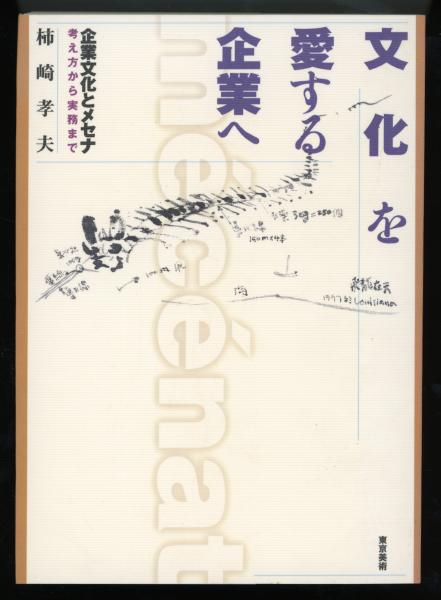 文化を
愛する
企業へ
企業文化とメセナ
考え方から実務まで
柿崎孝夫
mécénat
150m×4本
海
飛龍在天
Louisiana
東京美術